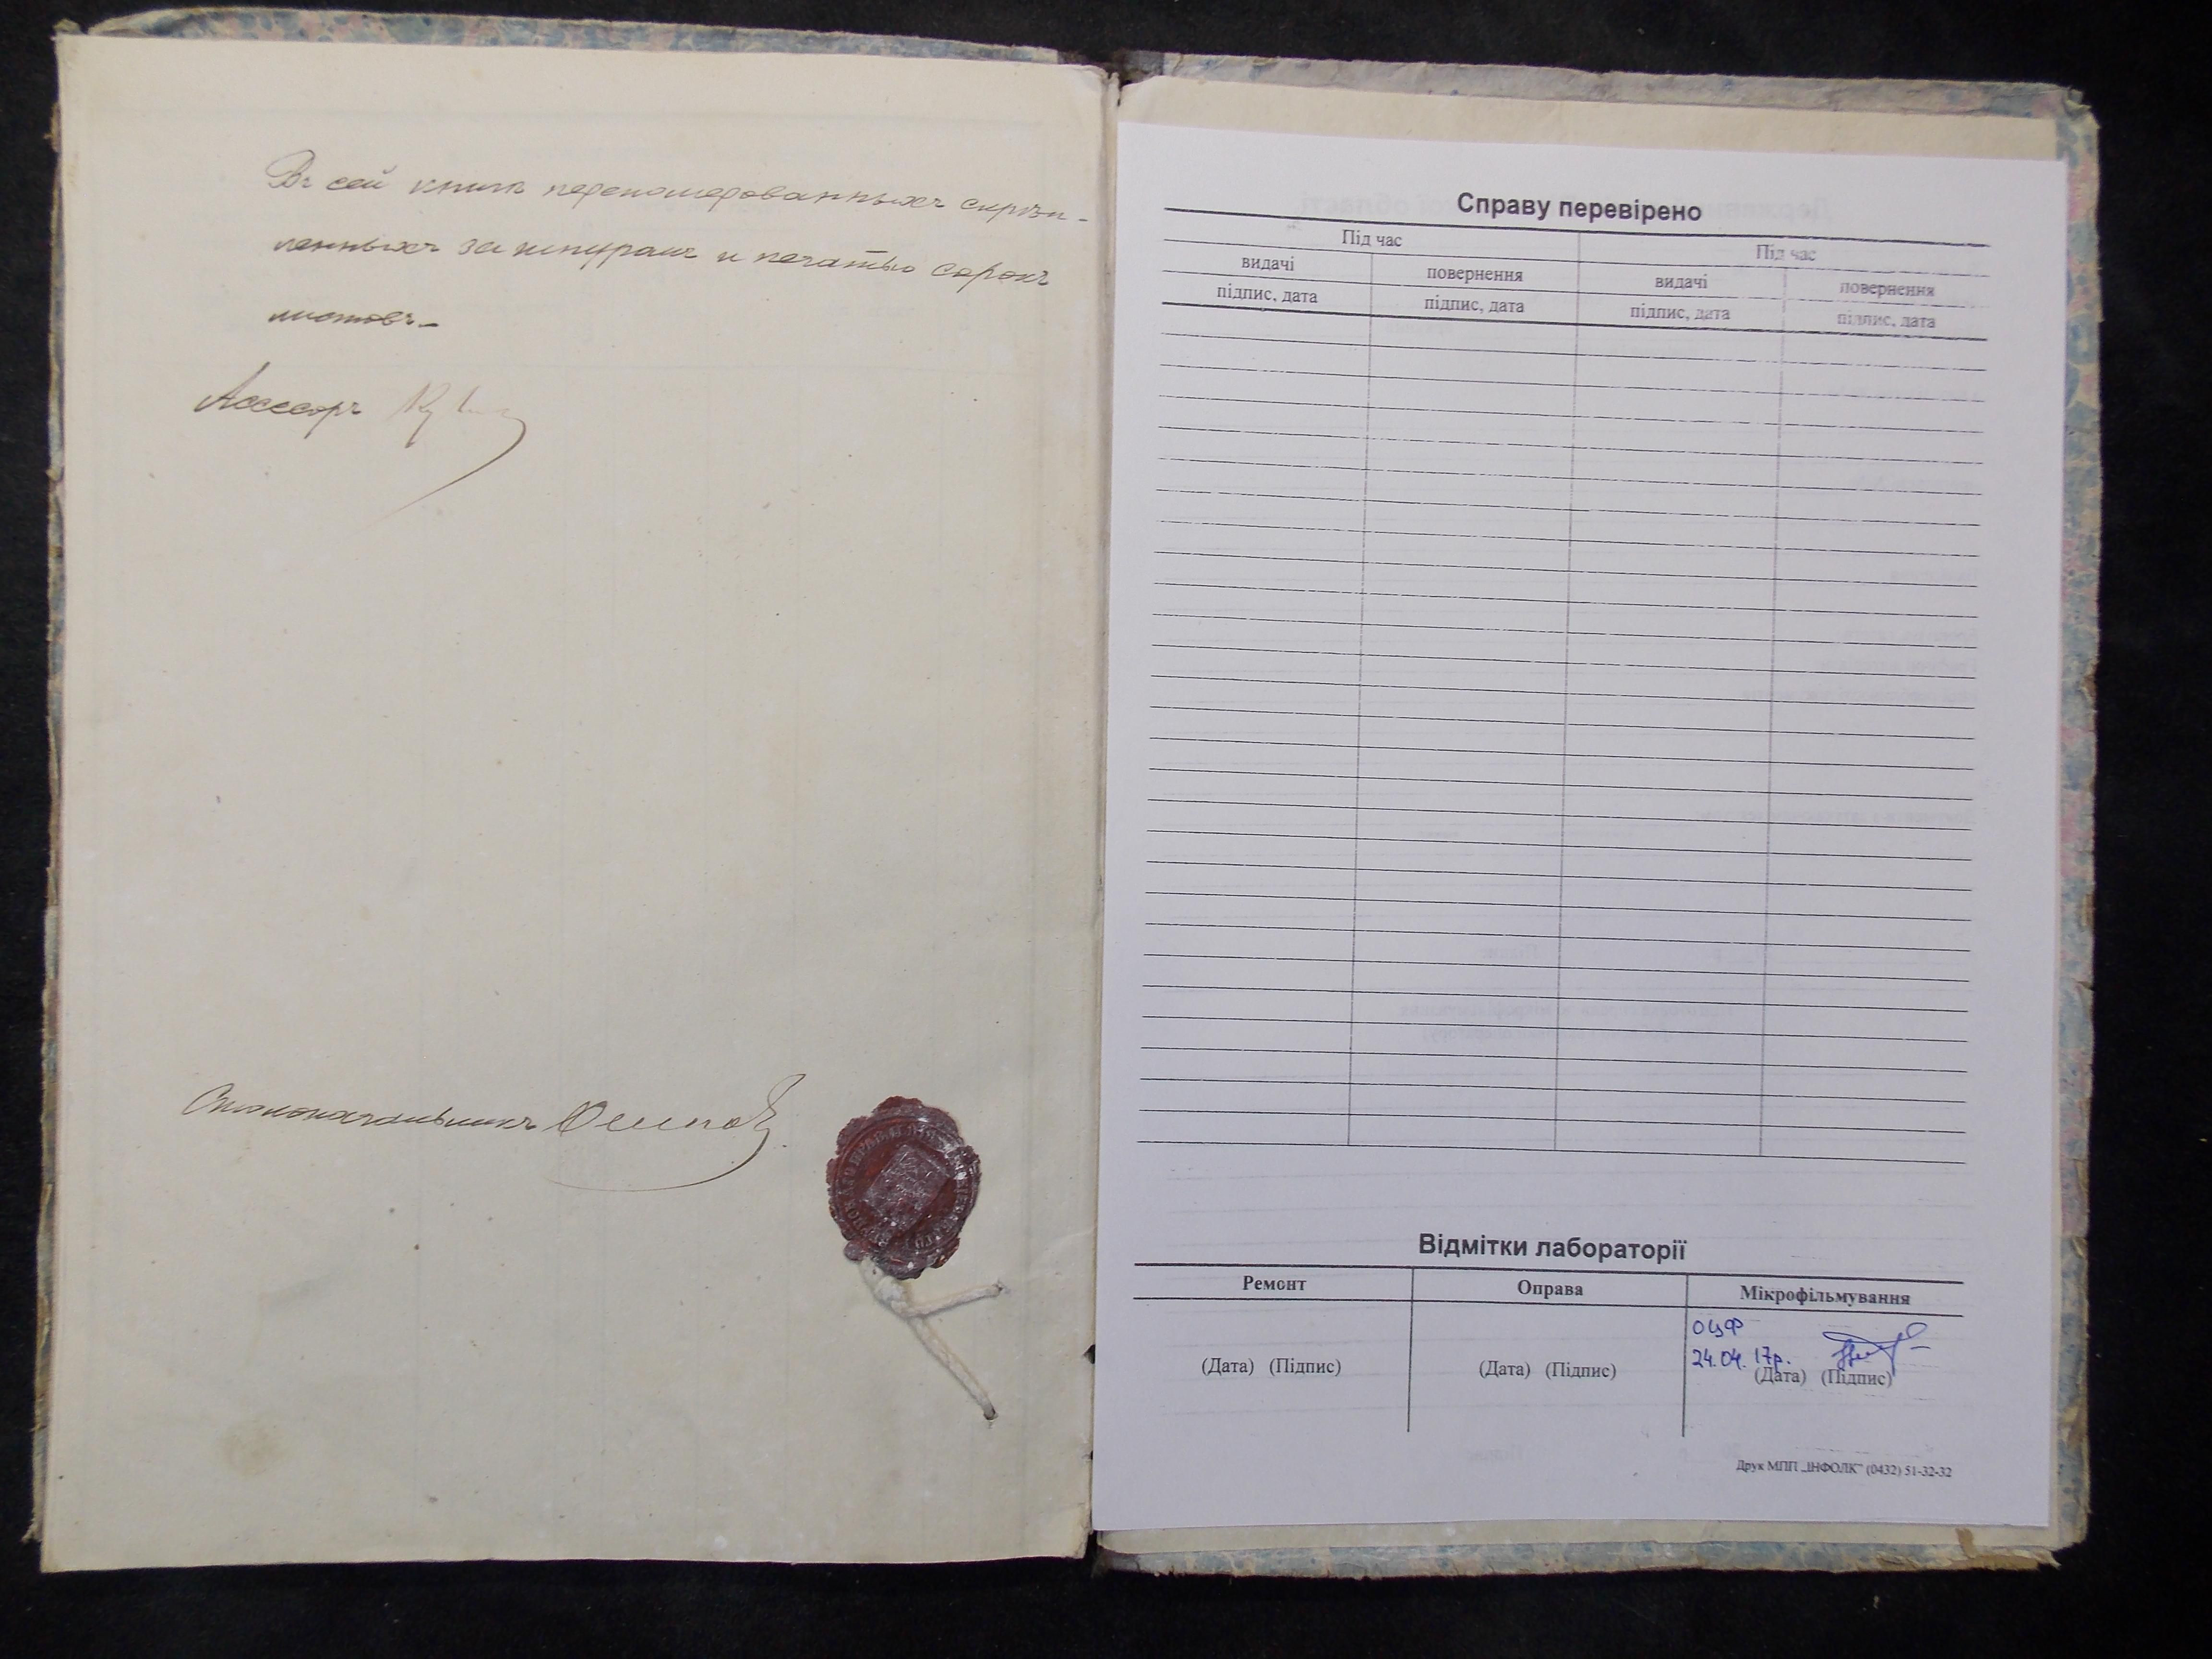 Въ сей книгѣ перенумерованныхъ скрѣп-
ленныхъ за шнуромъ и печатью сорокъ
листовъ.
Ассесоръ
Столоначальникъ Осипов
Справу перевірено
Під час Під час
видачі повернення видачі повернення
підпис, дата підпис, дата підпис, дата підпис, дата
Відмітки лабораторії
Ремонт Оправа Мікрофільмування
ОЦФ
24.04.17р.
(Дата) (Підпис) (Дата) (Підпис) (Дата) (Підпис)
Друк МПП „ІНФОЛК" (0432) 51-32-32